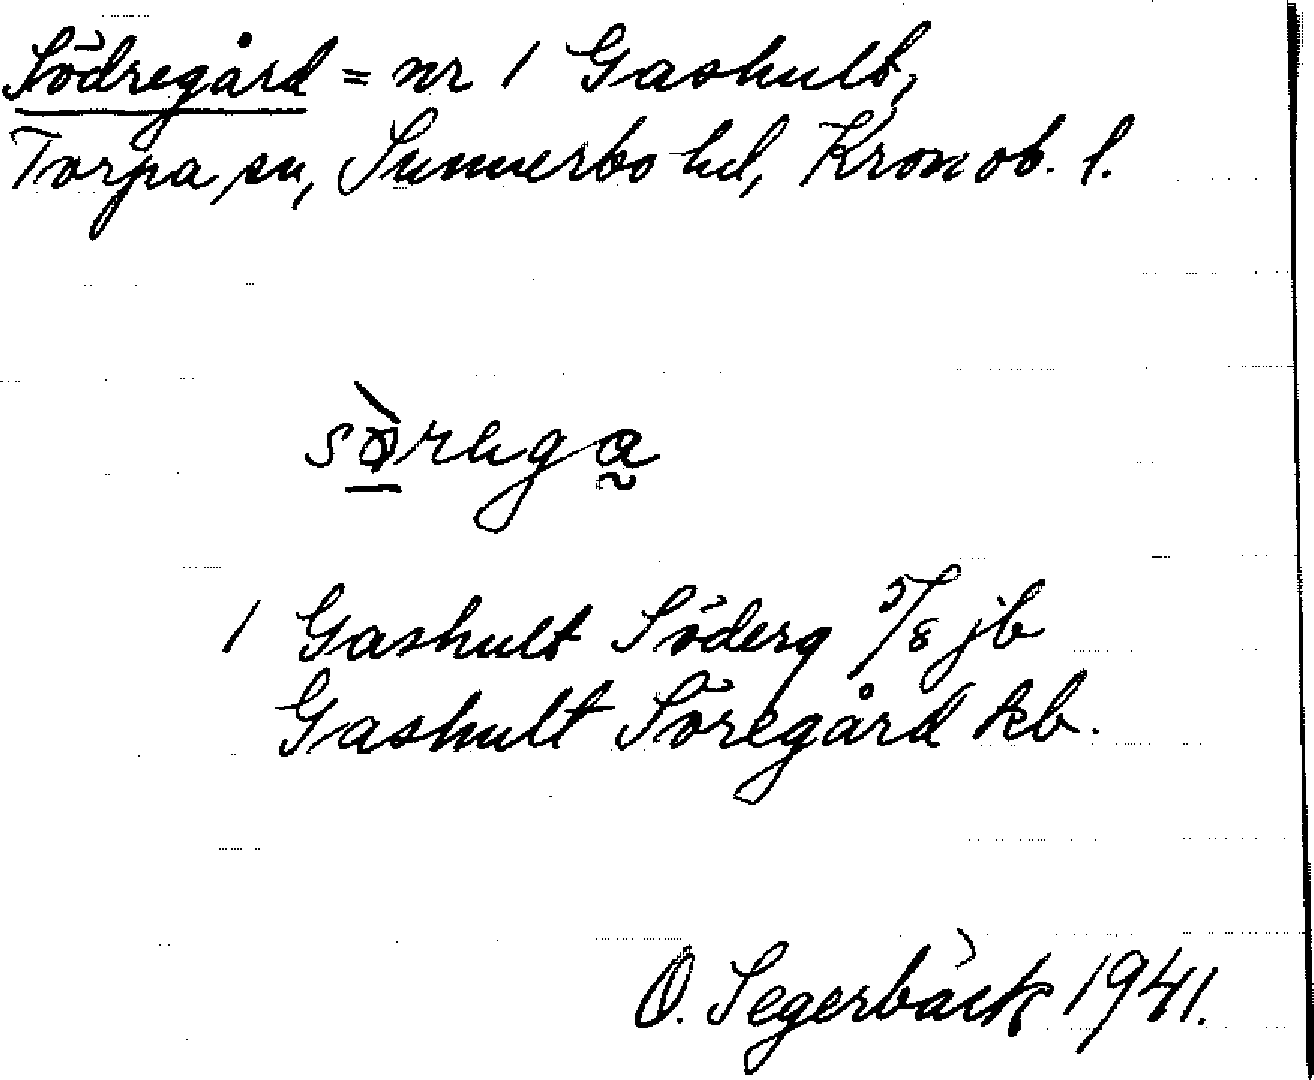 Södregård = nr 1 Gashult,
Torpa sn, Sunnerbo hd, Kronob. l.
1 Gashult Söderg 5/8 jb
Gashult Söregård kb.
O. Segerbäck 1941.